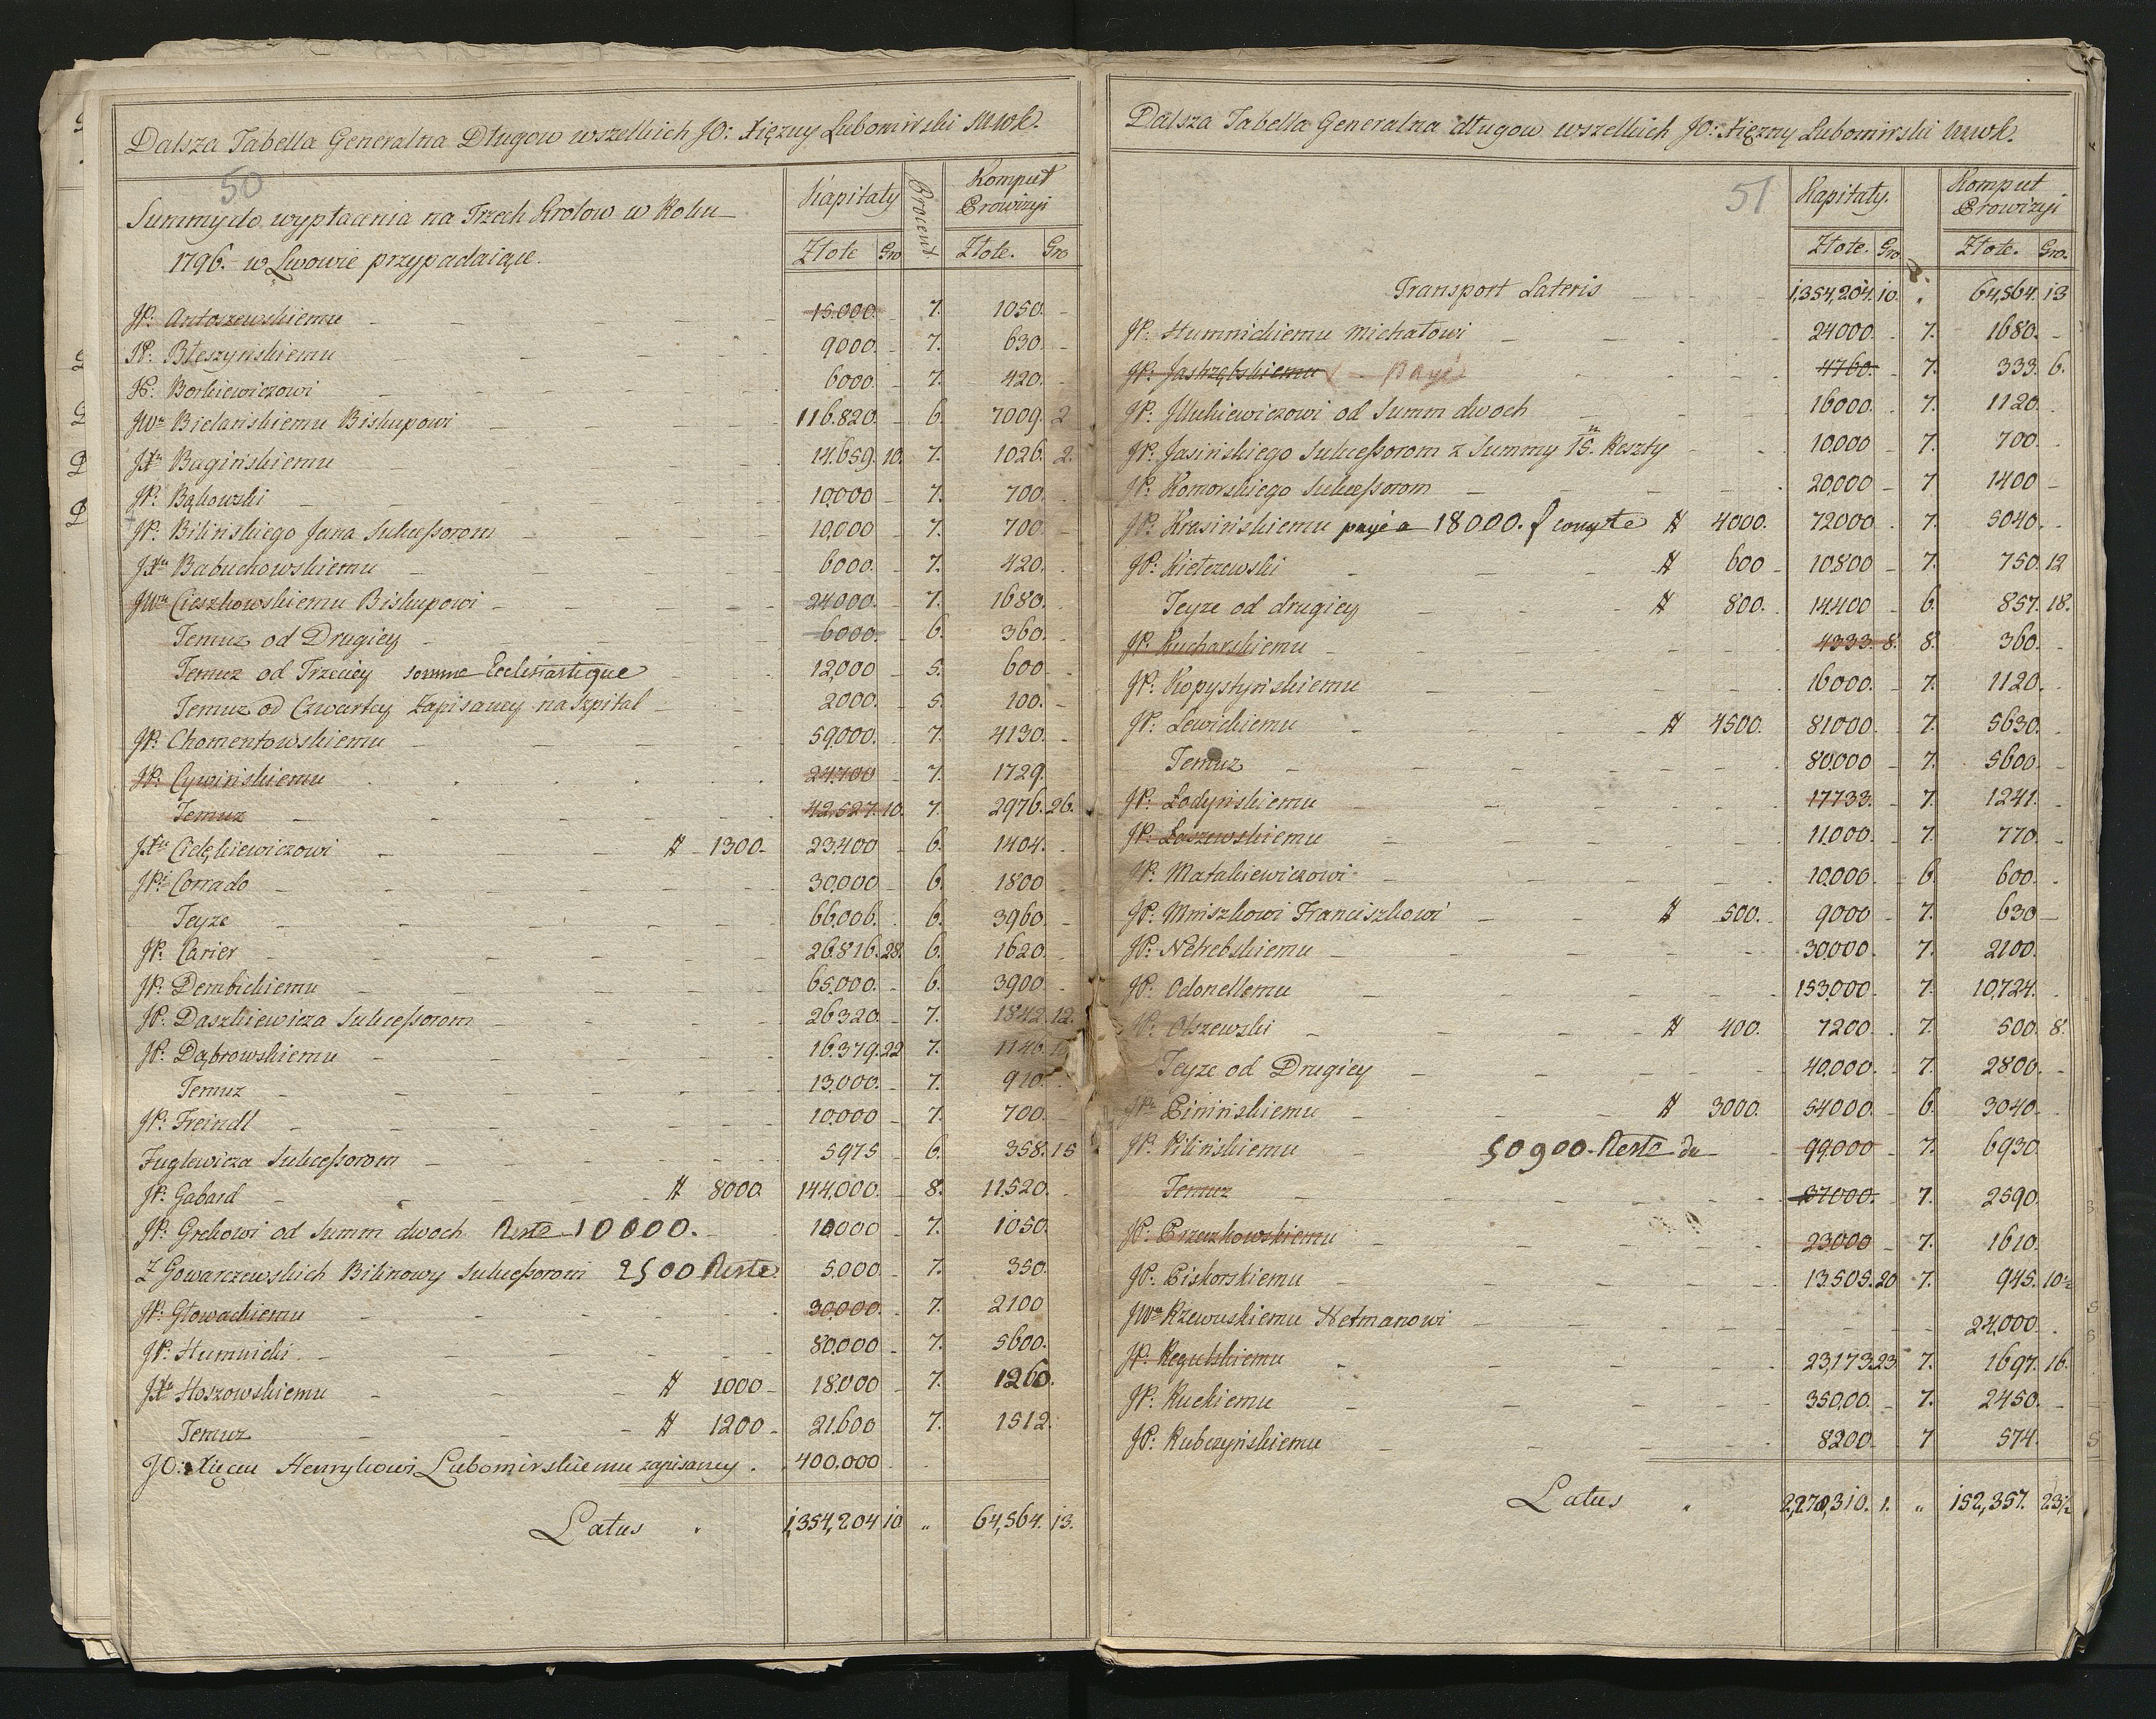 Dalsza Tabella Generalna Długow wszelkich JO: Xiężny Lubomirski
50
Summy do wypłacenia na Trzech Krolow w Roku
1796. w Lwowie przypadaiące.
Kapitały Procent Komput Prowizyi
Złote Gro Złote. Gro
JP: Antoszewskiemu 15.000. 7. 1050.
JP: Błeszyńskiemu 9000. 7. 630.
JP: Borkiewiczowi 6000. 7. 420.
JWu Bielańskiemu Biskupowi 116.820. 6. 7009. 2
JXu Bagińskiemu 14.659. 10. 7. 1026. 2.
JP: Bąkowski 10,000 7. 700.
JP: Bilińskiego Jana Sukceßorom 10,000 7. 700
JXu Babuchowskiemu 6000. 7. 420.
JWu Cieszkowskiemu Biskupowi 24000. 7. 1680.
Temuz od Drugiey 6000. 6. 360.
Temuz od Trzeciey somme Ecclesiastique 12,000 5. 600
Temuz od Czwartey Zapisaney na Szpital 2000. 5. 100.
JP: Chomentowskiemu 59,000. 7. 4130.
JP: Cywińskiemu 24,700 7. 1729.
Temuz 42,527. 10. 7. 2976. 26.
JXu Cielękiewiczowi # 1300. 23,400 6. 1404.
JPi Corrado 30,000 6. 1800
Teyze 66.006. 6. 3960.
JP: Carier 26.816. 28. 6. 1620.
JP: Dembickiemu 65.000. 6. 3900.
JP: Daszkiewicza Sukceßorom 26320. 7. 1842. 12.
JP: Dąbrowskiemu 16.379. 22 7. 1146.
Temuz 13,000. 7. 910.
JP: Freindl 10,000 7. 700.
Fuglewicza Sukceßorom 5975 6. 358. 15
JP: Gabard # 8000. 144,000. 8. 11,520.
JP: Grekowi od Summ dwoch Reste 10000. 10,000 7. 1050.
Z Gowarczewskich Bilinowy Sukceßorom 2500 Reste 5.000 7. 350.
JP: Głowackiemu 30,000. 7. 2100
JP: Humnicki 80,000 7. 5600.
JXu Hoszowskiemu # 1000 18.000 7. 1260.
Temuz # 1200 21.600 7. 1512.
JO: Xięciu Henrykowi Lubomirskiemu zapisaney. 400,000
Latus 1,354,204 10 " 64,564. 13.
Dalsza Tabella Generalna długow wszelkich JO: Xiężny Lubomirski
51
Kapitały. Komput Prowizyi
Złote. Gro Złote. Gro.
Transport Lateris 1,354,204. 10. " 64,564. 13
JP: Humnickiemu Michałowi 24000. 7. 1680.
JP: Jastrzębskiemu Payé 4760. 7. 333. 6.
JP: Jlukiewiczowi od Summ dwoch 16000. 7. 1120.
JP: Jasińskiego Sukceßorom z Summy 15. Reszty 10.000 7. 700.
JP: Komorskiego Sukceßorom 20,000 7 1400
JP: Krasińskiemu payé a 18000. f compte # 4000. 72000 7. 5040.
JP: Kiełczewski # 600 10800 7. 750. 12
Teyze od drugiey # 800. 14400 6. 857. 18.
JP: Kucharskiemu 4333. 8. 8. 360.
JP: Kopystyńskiemu 16000. 7. 1120.
JP: Lewickiemu # 4500. 81000. 7. 5630.
Temuz 80.000 7. 5600.
JP: Ładyńskiemu 17733. 7. 1241.
JP: Łaszewskiemu 11.000. 7. 770.
JP: Matakiewiczowi 10,000. 6. 600.
JP: Mniszkowi Franciszkowi # 500. 9000 7. 630
JP: Netrebskiemu 30,000. 7. 2100.
JP: Odonellemu 153,000. 7. 10,724.
JP: Olszewski # 400. 7200. 7. 500. 8.
Teyze od Drugiey 40,000. 7. 2800.
JPu Pinińskiemu # 3000. 54000. 6. 3040.
JP: Pilińskiemu 50900. Reste du 99,000 7. 6930
Temuz 37000. 7. 2590.
JP: Przeczkowskiemu 23000 7. 1610.
JP: Piskorskiemu 13.505. 20 7. 945. 10½
JWu Rzewuskiemu Hetmanowi 24,000.
JP: Regulskiemu 23,173 23 7. 1697. 16.
JP: Ruckiemu 35,000. 7. 2450.
JP: Rubczyńskiemu 8200. 7 574.
Latus 2,270,310. 1. " 152,357. 23½